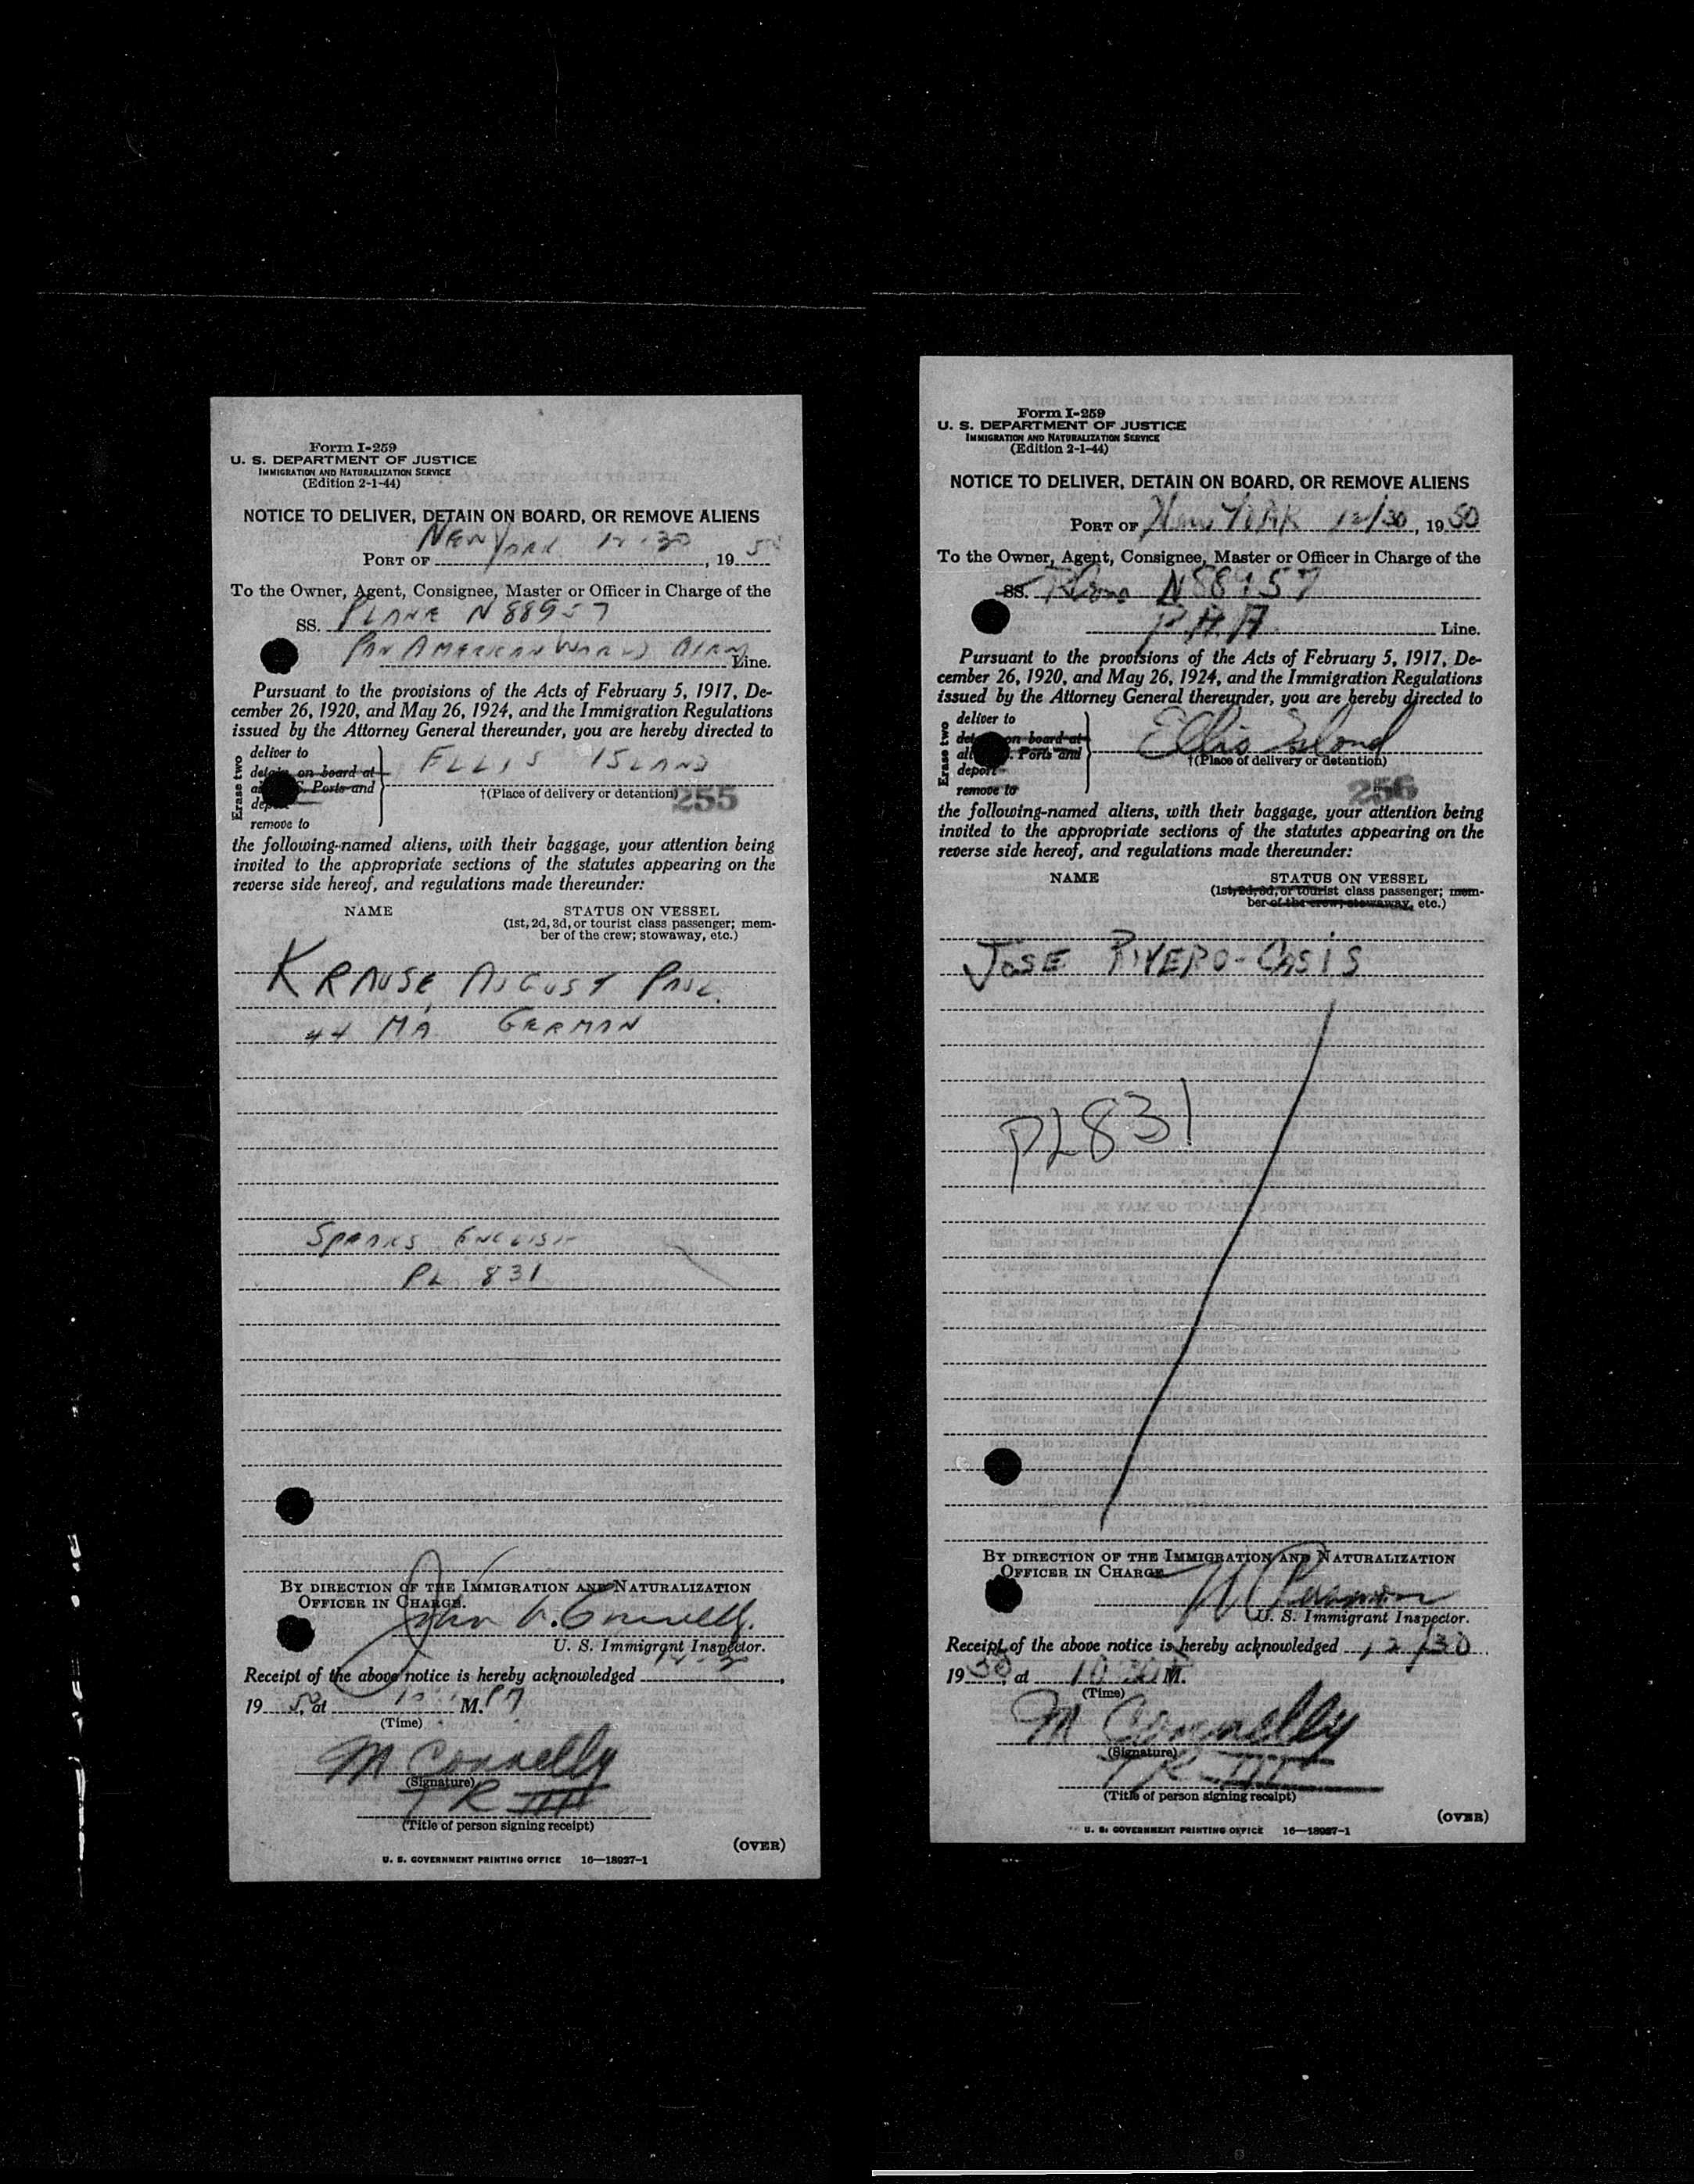 Form I-259
U. S. DEPARTMENT OF JUSTICE
IMMIGRATION AND NATURALIZATION SERVICE
(Edition 2-1-44)
NOTICE TO DELIVER, DETAIN ON BOARD, OR REMOVE ALIENS
PORT OF NEW YORK 12-30, 1950
To the Owner, Agent, Consignee, Master or Officer in Charge of the
SS. PLANE N 88957
PAN AMERICAN WORLD Line.
Pursuant to the provisions of the Acts of February 5, 1917, De-
cember 26, 1920, and May 26, 1924, and the Immigration Regulations
issued by the Attorney General thereunder, you are hereby directed to
Erase two
deliver to
detain on board at
S. Ports and
remove to
ELLIS ISLAND
†(Place of delivery or detention) 255
the following-named aliens, with their baggage, your attention being
invited to the appropriate sections of the statutes appearing on the
reverse side hereof, and regulations made thereunder:
NAME STATUS ON VESSEL
(1st, 2d, 3d, or tourist class passenger; mem-
ber of the crew; stowaway, etc.)
KRAUSE, AUGUST PAUL
44 MA GERMAN
SPEAKS ENGLISH
PL 831
BY DIRECTION OF THE IMMIGRATION AND NATURALIZATION
OFFICER IN CHARGE.
U. S. Immigrant Inspector.
Receipt of the above notice is hereby acknowledged
1950, at M.
(Time)
M Connelly
(Signature)
TR III
(Title of person signing receipt)
(OVER)
U. S. GOVERNMENT PRINTING OFFICE 16—18927-1
Form I-259
U. S. DEPARTMENT OF JUSTICE
IMMIGRATION AND NATURALIZATION SERVICE
(Edition 2-1-44)
NOTICE TO DELIVER, DETAIN ON BOARD, OR REMOVE ALIENS
PORT OF New YORK 12/30, 1950
To the Owner, Agent, Consignee, Master or Officer in Charge of the
SS. Plane N88957
P.A.A. Line.
Pursuant to the provisions of the Acts of February 5, 1917, De-
cember 26, 1920, and May 26, 1924, and the Immigration Regulations
issued by the Attorney General thereunder, you are hereby directed to
Erase two
deliver to
on board at
Ports and
deport
remove to
Ellis Island
†(Place of delivery or detention)
256
the following-named aliens, with their baggage, your attention being
invited to the appropriate sections of the statutes appearing on the
reverse side hereof, and regulations made thereunder:
NAME STATUS ON VESSEL
(1st, 2d, 3d, or tourist class passenger; mem-
ber of the crew; stowaway, etc.)
JOSE RIVERO-CASIS
PL831
BY DIRECTION OF THE IMMIGRATION AND NATURALIZATION
OFFICER IN CHARGE
U. S. Immigrant Inspector.
Receipt of the above notice is hereby acknowledged 12/30
1950, at M.
(Time)
M Connelly
(Signature)
TR III
(Title of person signing receipt)
(OVER)
U. S. GOVERNMENT PRINTING OFFICE 16—18927-1